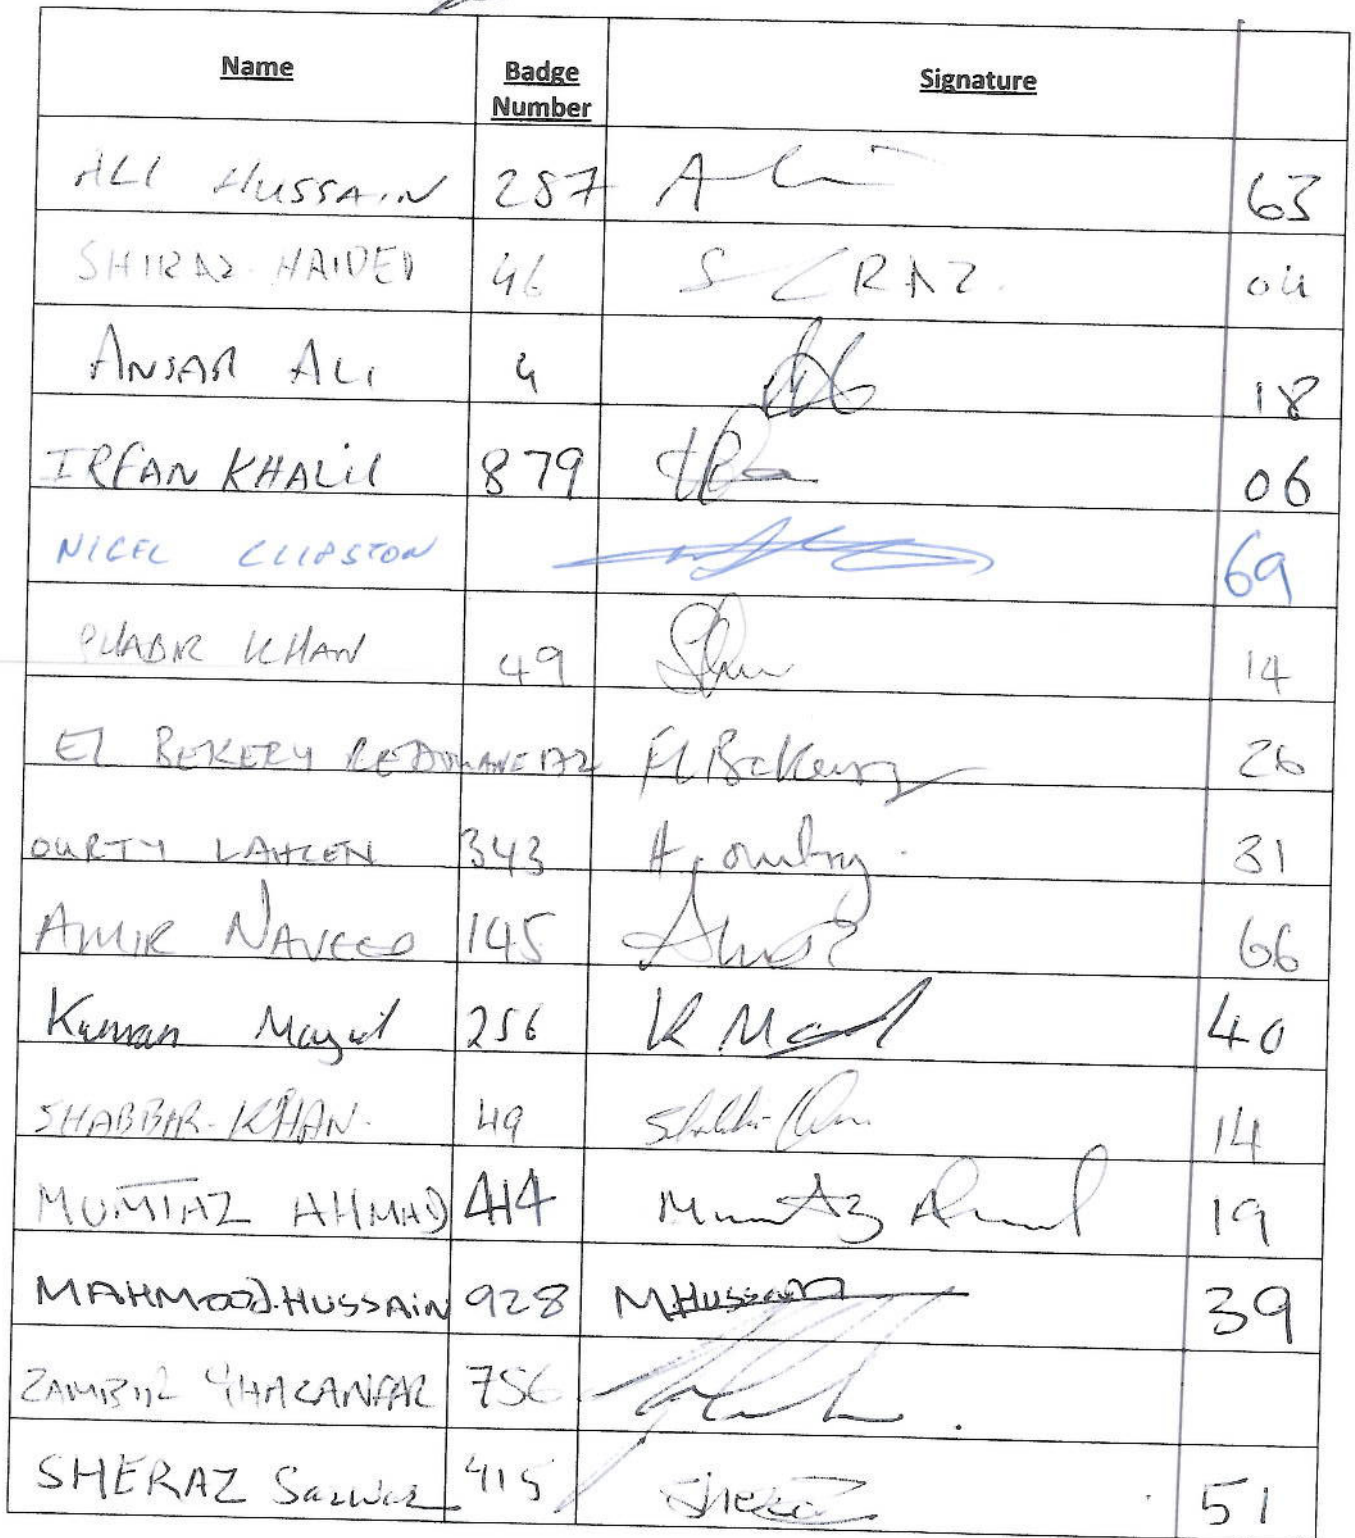 Name Badge Number Signature
ALI HUSSAIN 257 Ali 63
SHIRAZ HAIDER 46 S RAZ. 04
ANSAR ALI 4 18
IRFAN KHALIL 879 06
NIGEL CLIPSTON 69
KHAN 49 14
EL BEKERY El Bekery 26
OURTY LAHCEN 343 31
AMIR NAVEED 145 66
Kumar 256 K 40
SHABBIR KHAN. 49 14
MUMTAZ AHMAD 414 Mumtaz Ahmad 19
MAHMOOD.HUSSAIN 928 M.Hussain 39
756
SHERAZ Sarwar 415 Sheraz 51